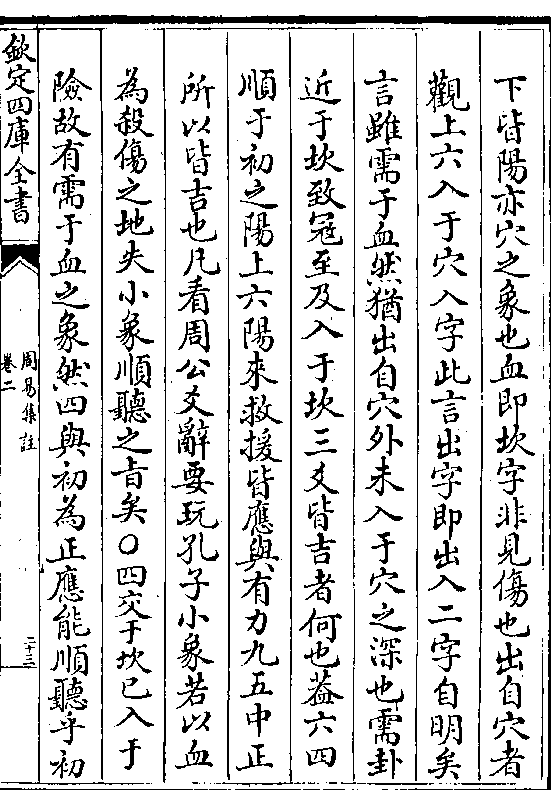 下皆陽亦穴之象也血即坎字非見傷也出自穴者
觀上六入于穴入字此言出字即出入二字自明矣
言雖需于血然猶出自穴外未入于穴之深也需卦
近于坎致冦至及入于坎三爻皆吉者何也葢六四
順于初之陽上六陽來救援皆應與有力九五中正
所以皆吉也凡看周公爻辭要玩孔子小象若以血
為殺傷之地失小象順聽之旨矣○四交于坎已入于
險故有需于血之象然四與初為正應能順聽乎初
欽定四庫全書
周易集註
卷二
二十三